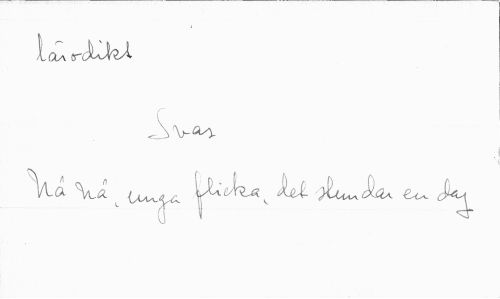 lärodikt
Svar
Nå Nå, unga flicka, det stundar en dag